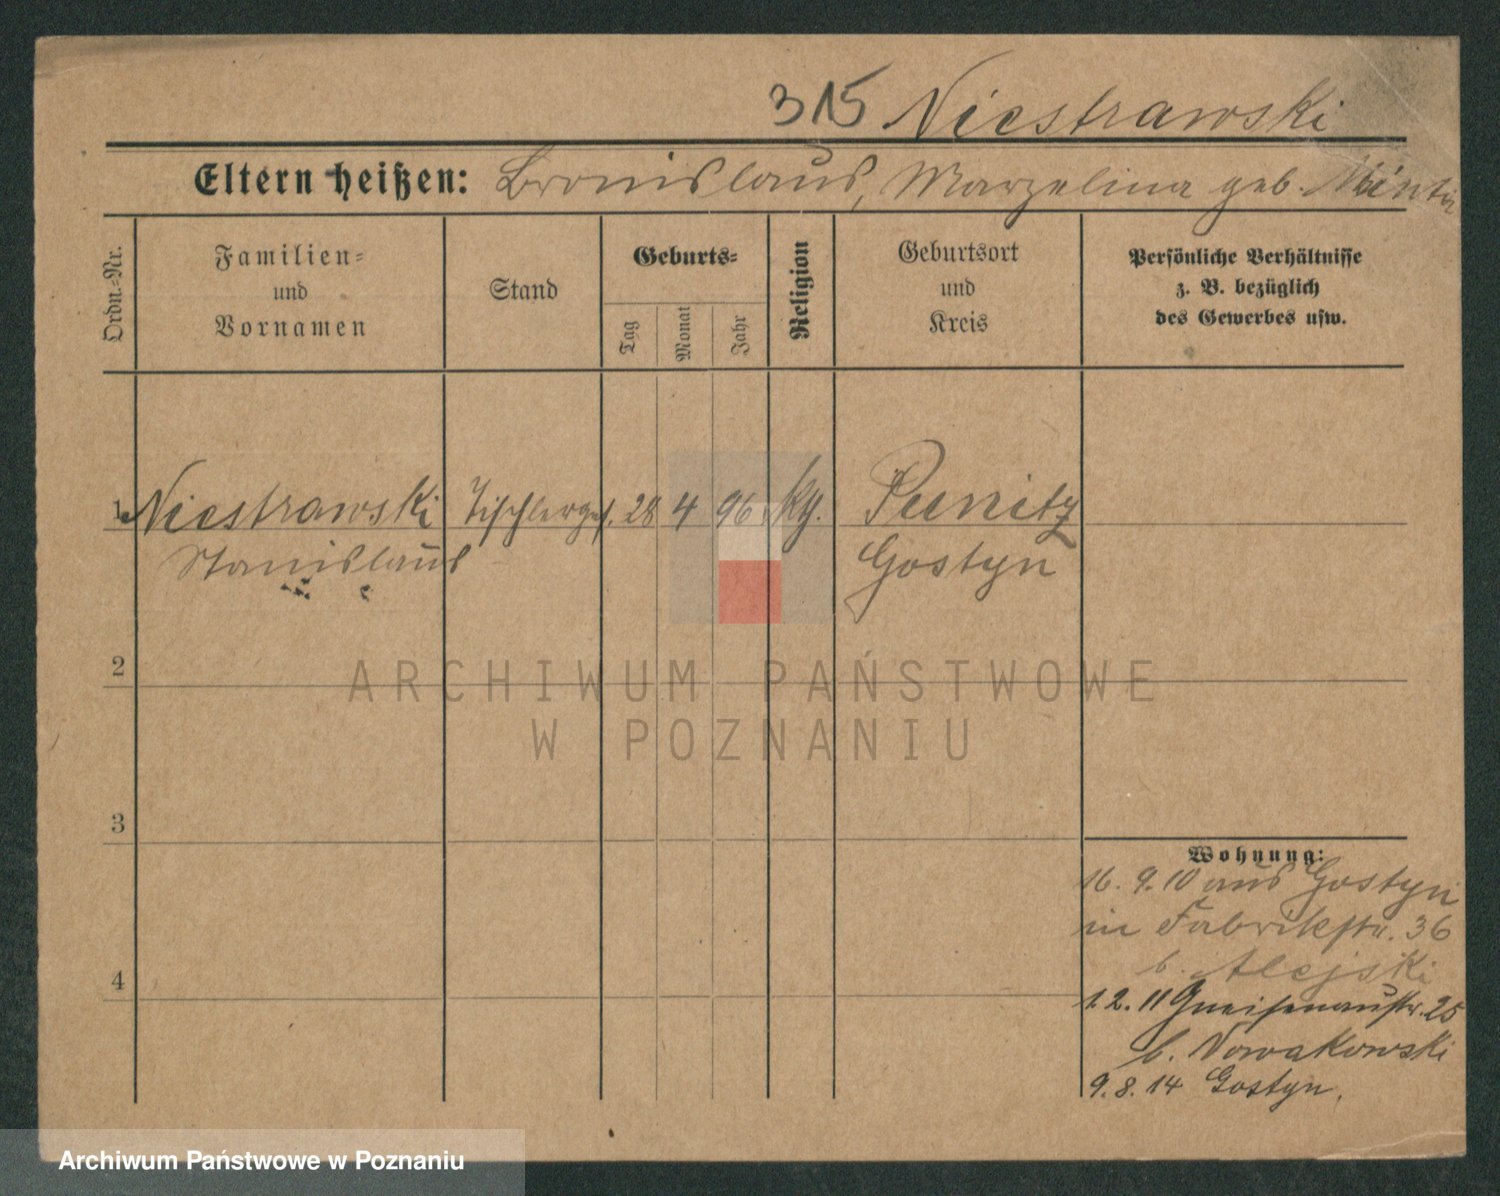 315 Niestrawski
Eltern heißen: Bronislaus, Marzelina geb.
Ordn.-Nr.
Familien-
und
Vornamen
Stand
Geburts-
Tag
Monat
Jahr
Religion
Geburtsort
und
Kreis
Persönliche Verhältnisse
z. B. bezüglich
des Gewerbes usw.
1 Niestrawski Tischlerges. 28 4 96 kth. Punitz
Stanislaus Gostyn
2
ARCHIWUM PAŃSTWOWE
W POZNANIU
3
Wohnung:
16. 9. 10 aus Gostyn
in Fabrikstr. 36
b. Alejski
4
1. 2. 11 Gneisenaustr. 25
b. Nowakowski
9. 8. 14 Gostyn.
Archiwum Państwowe w Poznaniu